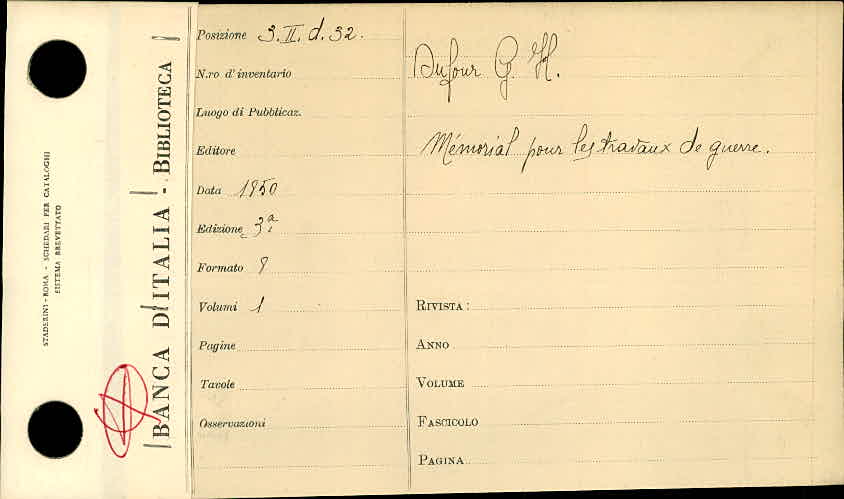 STADERINI - ROMA - SCHEDARI PER CATALOGHI
SISTEMA BREVETTATO
BANCA D'ITALIA - BIBLIOTECA
Posizione 3. II. d. 32.
N.ro d'inventario
Luogo di Pubblicaz.
Editore
Data 1950
Edizione 3ª
Formato 8
Volumi 1
Pagine
Tavole
Osservazioni
Dufour G. H.
Mémorial pour les travaux de guerre.
RIVISTA:
ANNO
VOLUME
FASCICOLO
PAGINA